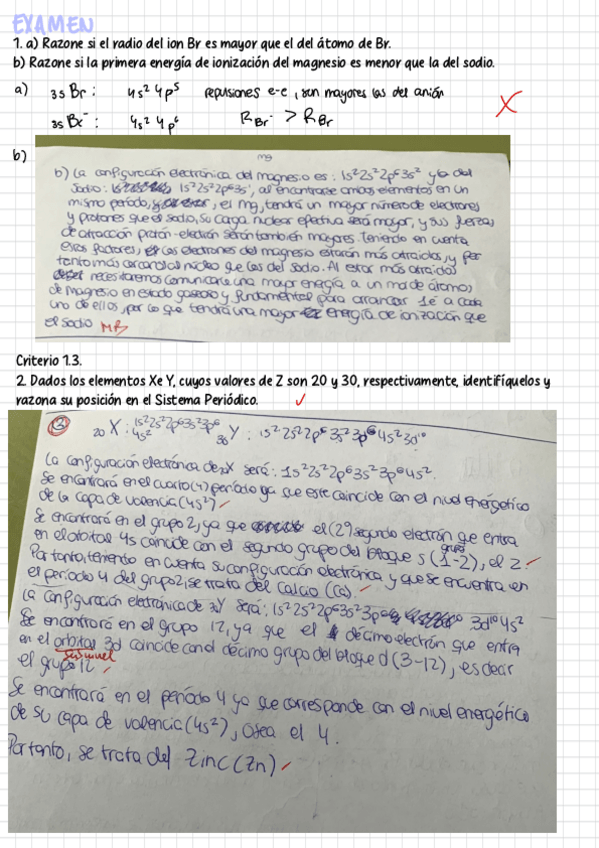 EXAMEN
1. a) Razone si el radio del ion Br es mayor que el del átomo de Br.
b) Razone si la primera energía de ionización del magnesio es menor que la del sodio.
a) 35 Br : 4s² 4p⁵ repulsiones e-e , son mayores las del anión
35 Br⁻ : 4s² 4p⁶ R Br⁻ > R Br
b)
mg
b) La configuración electrónica del magnesio es: 1s²2s²2p⁶3s² y la del
sodio: 1s²2s²2p⁶3s¹, al encontrarse ambos elementos en un
mismo período, el mg, tendrá un mayor número de electrones
y protones que el sodio, su carga nuclear efectiva será mayor, y sus fuerzas
de atracción protón-electrón serán también mayores. Teniendo en cuenta
estos factores, los electrones del magnesio estarán más atraídos, y por
tanto más cercanos al núcleo que los del sodio. Al estar más atraídos
necesitaremos comunicarle una mayor energía a un mol de átomos
de magnesio en estado gaseoso y fundamental para arrancar 1e⁻ a cada
uno de ellos, por lo que tendrá una mayor energía de ionización que
el sodio MB
Criterio 1.3.
2. Dados los elementos X e Y, cuyos valores de Z son 20 y 30, respectivamente, identifíquelos y
razona su posición en el Sistema Periódico. ✓
20 X : 1s²2s²2p⁶3s²3p⁶ 4s² 30 Y : 1s²2s²2p⁶3s²3p⁶4s²3d¹⁰
La configuración electrónica de 20X será: 1s²2s²2p⁶3s²3p⁶4s².
Se encontrará en el cuarto (4) período ya que este coincide con el nivel energético
de la capa de valencia (4s²) ✓
Se encontrará en el grupo 2, ya que el (2º) segundo electrón que entra
en el orbital 4s coincide con el segundo grupo del bloque s (grupo 1-2), el 2. ✓
Por tanto, teniendo en cuenta su configuración electrónica y que se encuentra en
el período 4 del grupo 2, se trata del calcio (Ca) ✓
La configuración electrónica de 30Y será: 1s²2s²2p⁶3s²3p⁶ 3d¹⁰4s²
Se encontrará en el grupo 12, ya que el décimo electrón que entra
en el orbital 3d coincide con el décimo grupo del bloque d (3-12), es decir
subnivel
el grupo 12 ✓
Se encontrará en el período 4 ya que corresponde con el nivel energético
de su capa de valencia (4s²), osea el 4.
Por tanto, se trata del Zinc (Zn) ✓